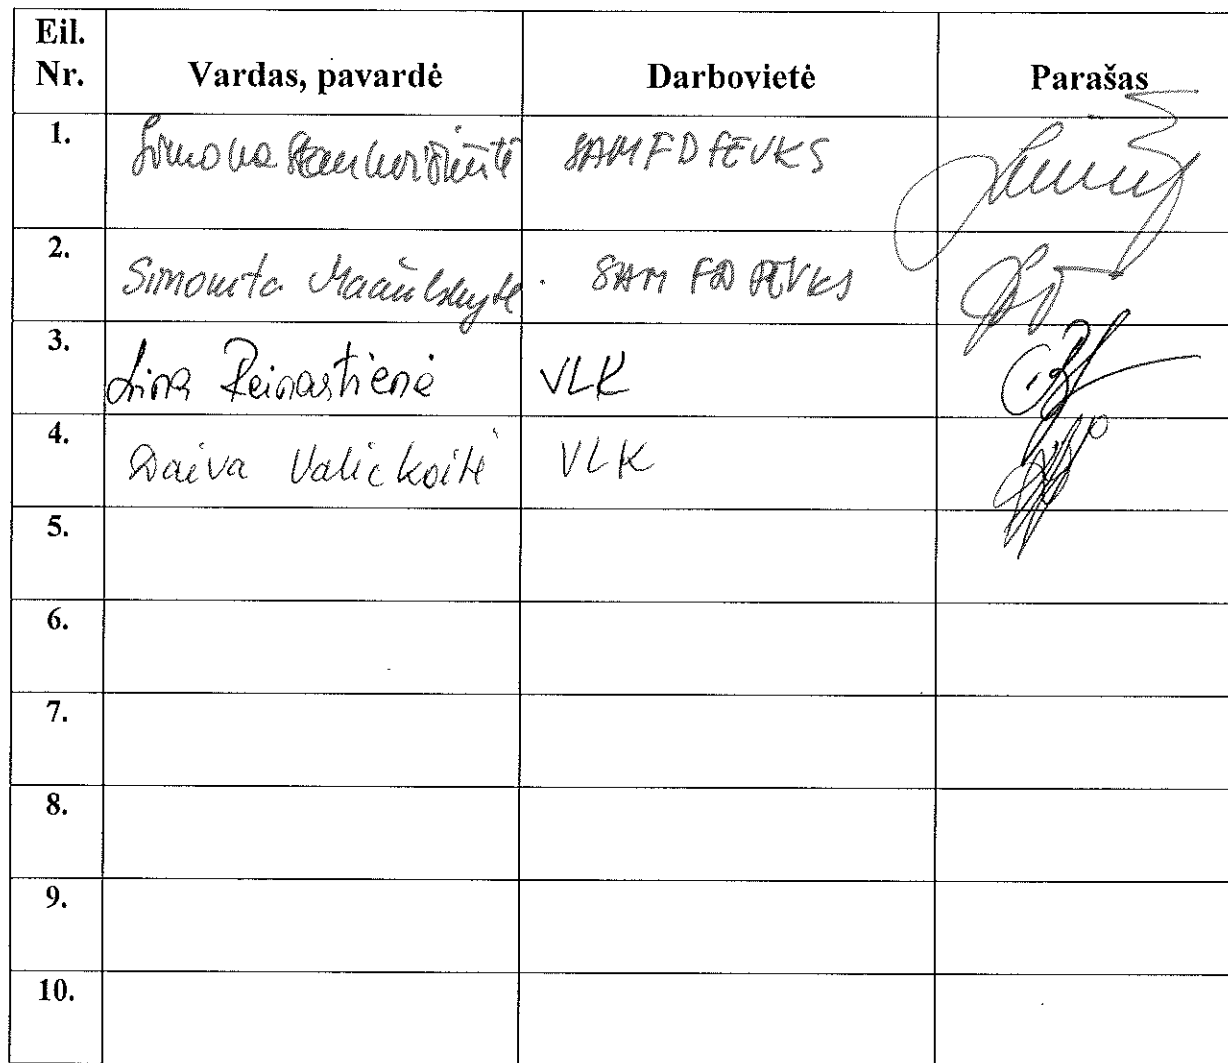 Eil. Nr. Vardas, pavardė Darbovietė Parašas
1. Simona SAM FD FEVKS
2. Simonita SAM FD FEVKS
3. Lina Reinastienė VLK
4. Daiva Valickaitė VLK
5.
6.
7.
8.
9.
10.